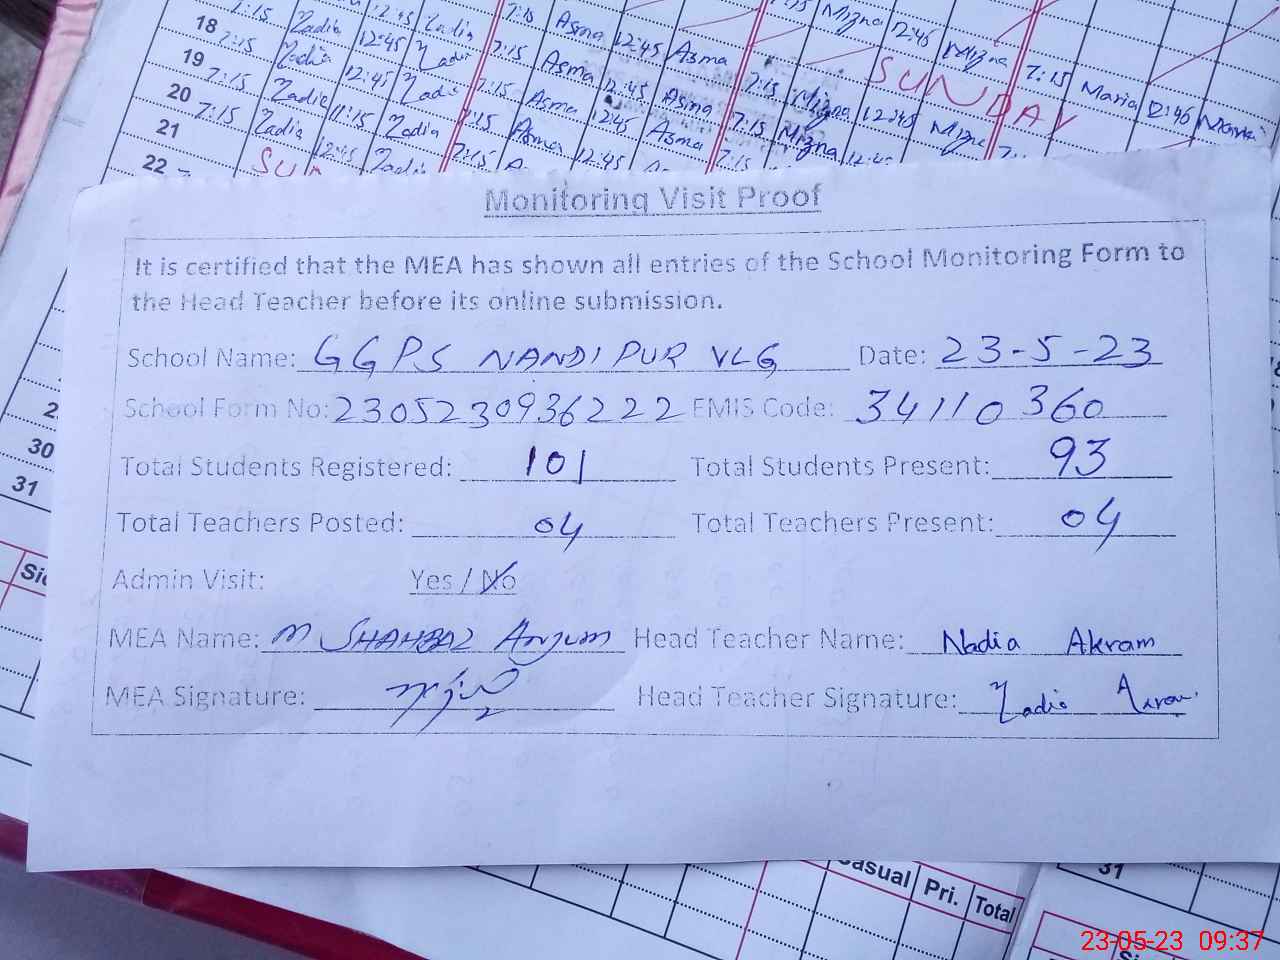 18 7:15 Zadia 12:45 Zadia 7:15 Asma 12:45 Asma Mizna 12:45 Mizna 7:15 Maria 12:45 Maria
19 7:15 Zadia 12:45 Zadia 7:15 Asma 12:45 Asma SUNDAY
20 7:15 Zadia 11:15 Zadia 7:15 Asma 12:45 Asma 7:15 Mizna 12:45 Mizna
21 SUN 12:45 Zadia 7:15 12:45 7:15
22
Monitoring Visit Proof
It is certified that the MEA has shown all entries of the School Monitoring Form to
the Head Teacher before its online submission.
School Name: GGPS NANDIPUR VLG Date: 23-5-23
School Form No: 2305230936222 EMIS Code: 34110360
Total Students Registered: 101 Total Students Present: 93
Total Teachers Posted: 04 Total Teachers Present: 04
Admin Visit: Yes / No
MEA Name: M SHAHBAZ Anjum Head Teacher Name: Nadia Akram
MEA Signature: Head Teacher Signature: Nadia Akram
30
31
31
Casual Pri. Total
23-05-23 09:37